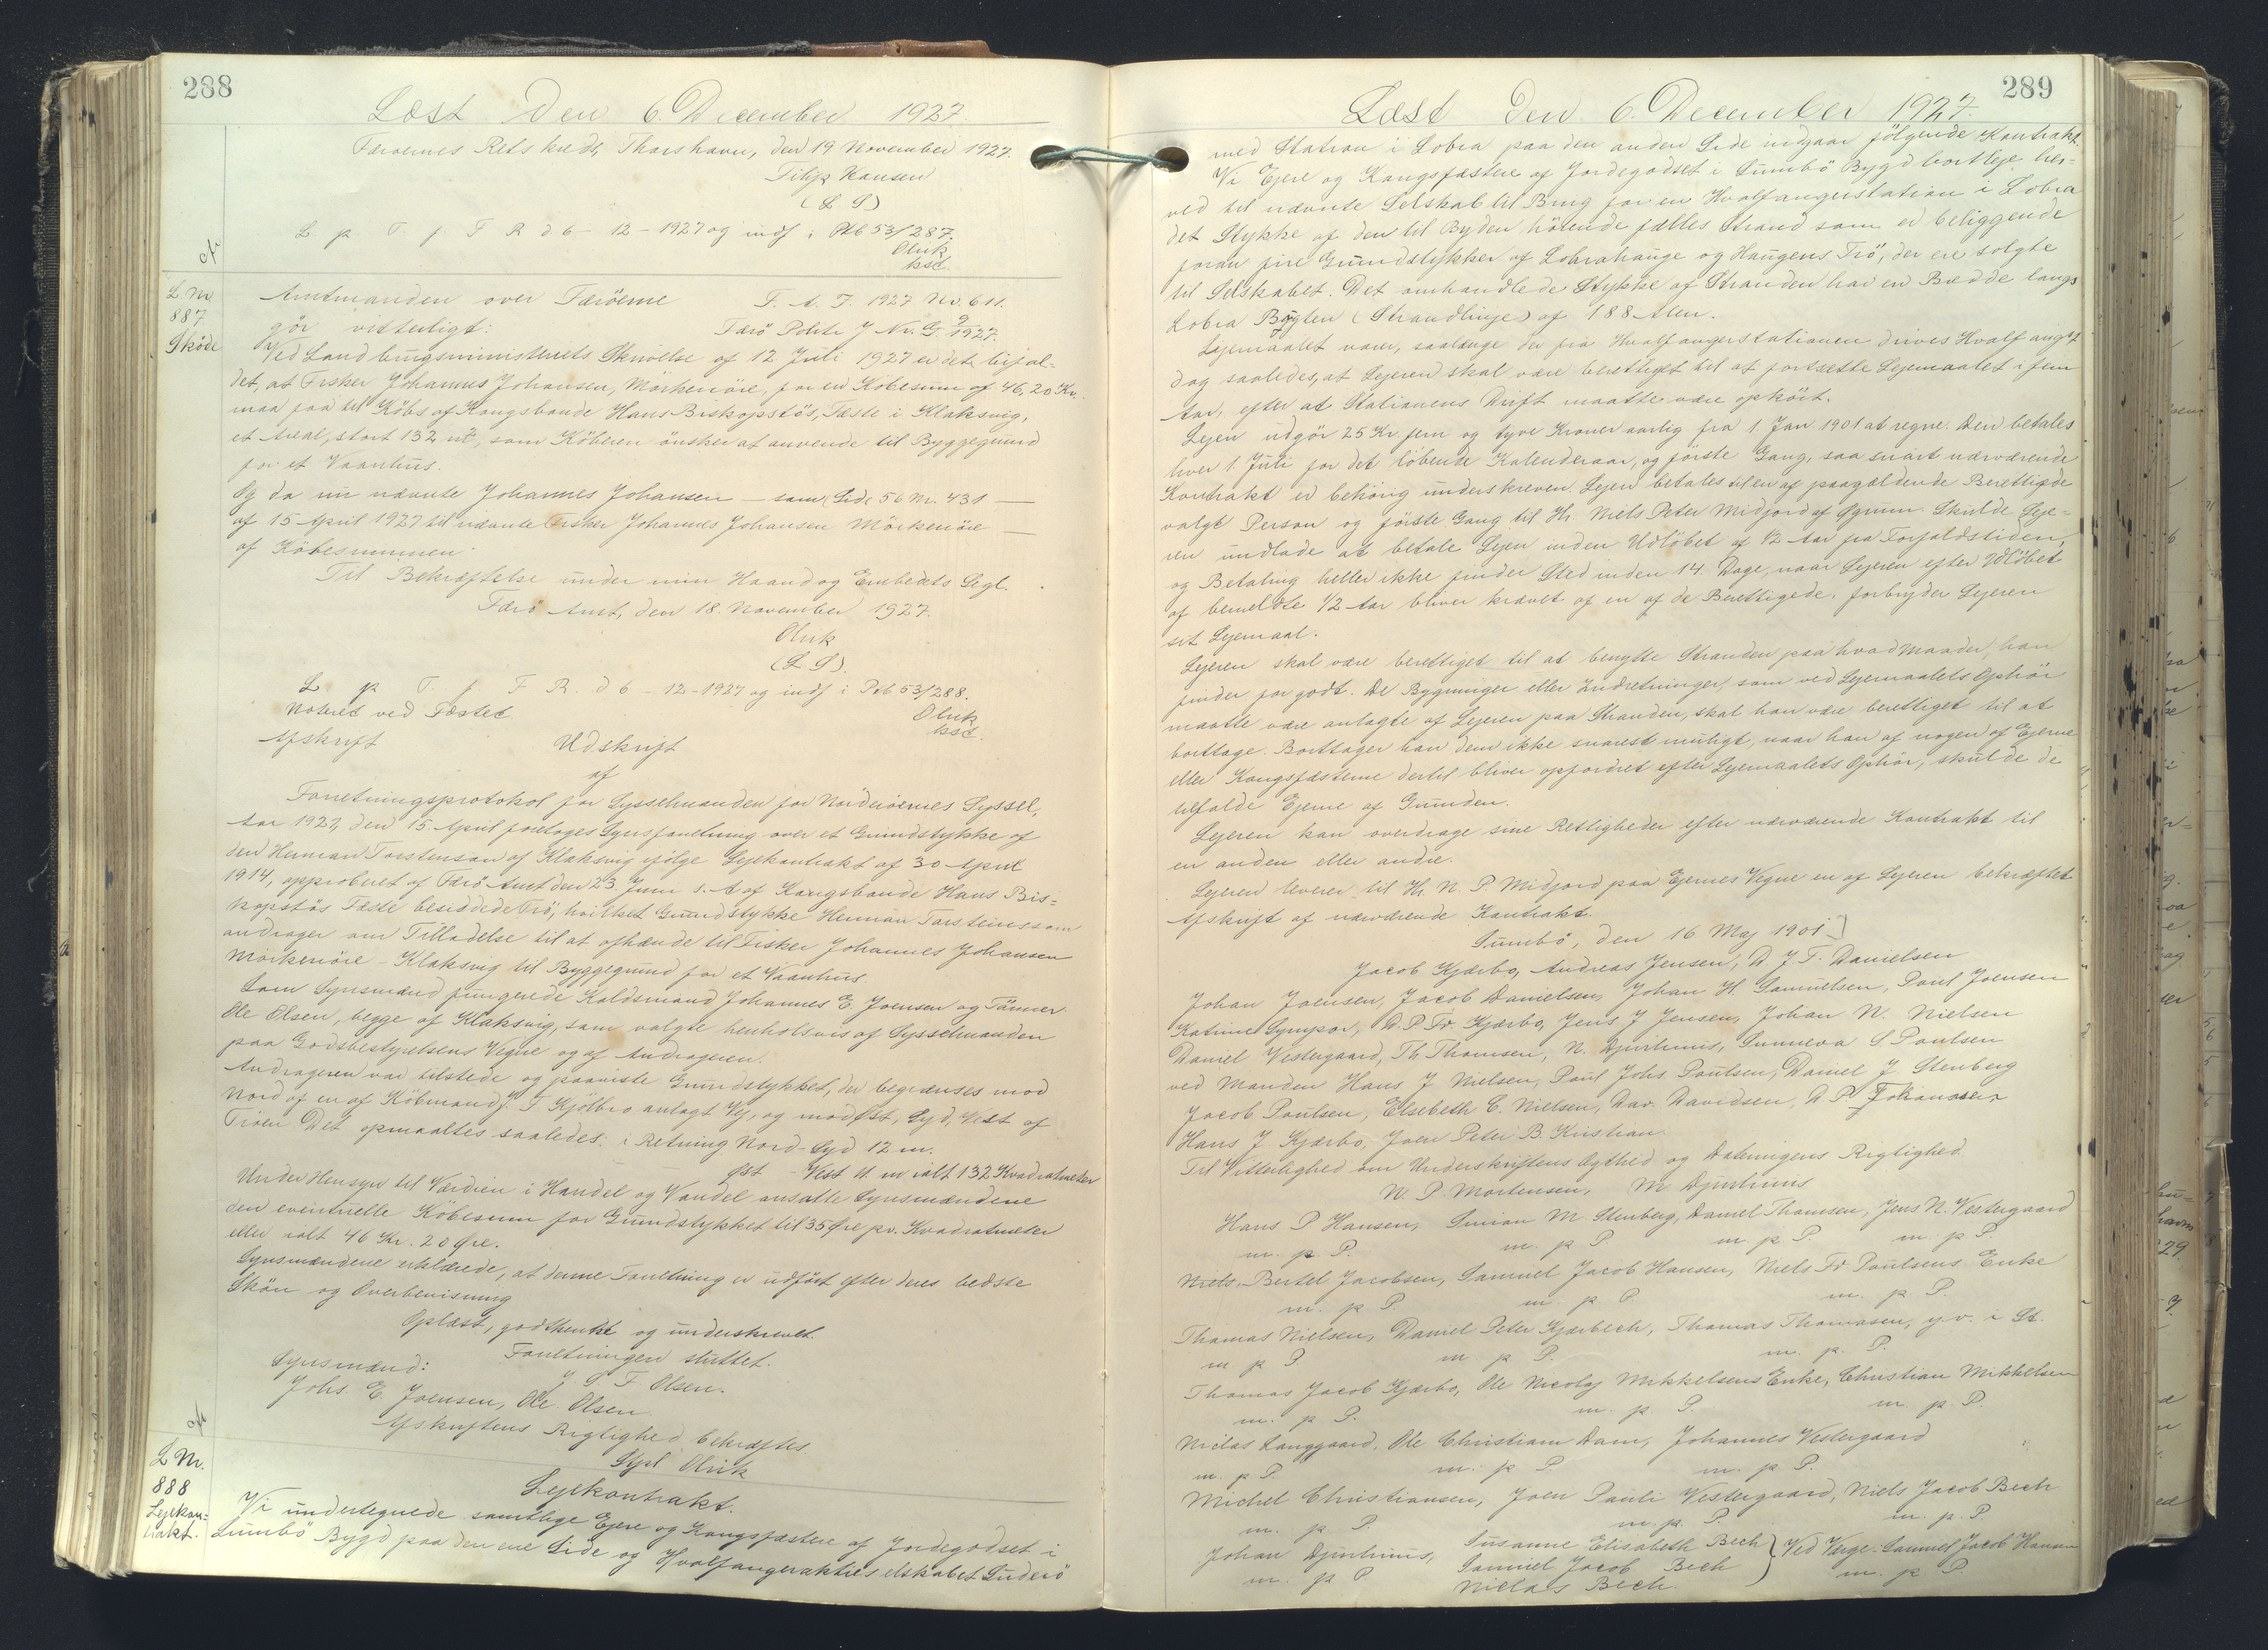 288
Læst Den 6. December 1927.
Færøernes Retskreds, Thorshavn, den 19 November 1927.
Filip Hansen
(L S)
L. p T. f F R d. 6 - 12 - 1927 og indf i Ptb 53/287.
Olrik
ksd.
L. Nr.
887
Sköde
Amtmanden over Færöerne F. A. J. 1927 No. 611.
gör vitterligt: Færö Politi J Nr. G 9/1927.
Ved Landbrugsministeriets Skrivelse af 12 Juli 1927 er det bifal-
det, at Fisker Johannes Johansen, Mörkeriöre, for en Köbesum af 46,20 Kr.
maa faa til Köbs af Kongsbonde Hans Biskopstös, Fæste i Klaksvig,
et Areal, stort 132 m², som Köberen önsker at anvende til Byggegrund
for et Vaanhus.
Og da nu nævnte Johannes Johansen — som Side 56 Nr. 431 —
af 15 April 1927 til nævnte Fisker Johannes Johansen Mörkeriöre —
af Köbesummen.
Til Bekræftelse under min Haand og Embedets Segl.
Færö Amt, den 18. November 1927.
Olrik
(L. S).
L p T. f F R. d 6 - 12 - 1927 og indf i Ptb 53/288.
Noteret ved Fæstet Olrik
ksd.
Afskrift Udskrift
af
Forretningsprotokol for Sysselmanden for Norderöernes Syssel,
Aar 1927, den 15. April foretoges Synsforretning over et Grundstykke af
den Herman Torstenson af Klaksvig ifölge Lejekontrakt af 30 April
1914, approberet af Færö Amt den 23. Juni s. A. af Kongsbonde Hans Bis-
kopstös Fæste besiddede Trö, hvilket Grundstykke Herman Torsteinsson
andrager om Tilladelse til at afhænde til Fisker Johannes Johansen
Mörkeriöre - Klaksvig til Byggegrund for et Vaanhus.
Som Synsmænd fungerede Kaldsmand Johannes E. Joensen og Tömrer
Ole Olsen, begge af Klaksvig, som valgte henholdsvis af Sysselmanden
paa Godsbestyrelsens Vegne og af Andrageren.
Andrageren var tilstede og paaviste Grundstykket, der begrænses mod
Nord af en af Köbmand J. F Kjölbro anlagt Vej, og mod Øst, Syd, Vest af
Tröen Det opmaaltes saaledes: i Retning Nord - Syd 12 m.
Øst - Vest 11 m ialt 132 Kvadratmeter
Under Hensyn til Værdien i Handel og Vandel ansatte Synsmændene
den eventuelle Köbesum for Grundstykket til 35 Øre pr. Kvadratmeter
eller ialt 46 Kr. 20 Øre.
Synsmændene erklærede, at denne Forretning er udfört efter deres bedste
Skön og Overbevisning
Oplæst, godkendt og underskrevet.
Forretningen sluttet.
Synsmænd: J. S. F. Olsen.
Johs. E. Joensen, Ole Olsen.
Afskriftens Rigtighed bekræftes.
Olrik
L Nr.
888
Lejekon-
trakt.
Lejekontrakt.
Vi undertegnede samtlige Ejere og Kongsfæstere af Jordegodset i
Sumbö Bygd paa den ene Side og Hvalfangeraktieselskabet Suderö
289
Læst Den 6. December 1927.
med Station i Lobra paa den anden Side indgaar fölgende Kontrakt.
Vi Ejere og Kongsfæstere af Jordegodset i Sumbö Bygd bortleje her-
ved til nævnte Selskab til Brug for en Hvalfangerstation i Lobra
det Stykke af den til Byden hörende fælles Strand som er beliggende
foran fire Grundstykker af Lobrahauge og Haugens Trö, der ere solgte
til Selskabet. Det omhandlede Stykke af Stranden har en Bredde langs
Lobra Bugten (Strandlinje) af 188 Alen.
Lejemaalet varer, saalænge der fra Hvalfangerstationen drives Hvalfangst
dog saaledes, at Lejeren skal være berettiget til at fortsætte Lejemaalet i fem
Aar, efter at Stationens Drift maatte være ophört.
Lejen udgör 25 Kr. fem og tyve Kroner aarlig fra 1. Jan 1901 at regne. Den betales
hver 1. Juli for det löbende Kalenderaar, og förste Gang, saa snart nærværende
Kontrakt er behörig underskreven. Lejen betales til en af paagældende Berettigede
valgt Person og förste Gang til Hr. Niels Peter Midjord af Øgrum. Skulde Leje-
ren undlade at betale Lejen inden Udlöbet af ½ Aar fra Forfaldstiden,
og Betaling heller ikke finder Sted inden 14. Dage, naar Lejeren efter Udlöbet
af bemeldte 1/2 Aar bliver krævet af en af de Berettigede, forbryder Lejeren
sit Lejemaal.
Lejeren skal være berettiget til at benytte Stranden paa hvad Maader, han
finder for godt. De Bygninger eller Indretninger, som ved Lejemaalets Ophör
maatte være anlagte af Lejeren paa Stranden, skal han være berettiget til at
borttage. Borttager han dem ikke snarest muligt, naar han af nogen af Ejerne
eller Kongsfæsterne dertil bliver opfordret efter Lejemaalets Ophör, skulde de
tilfalde Ejerne af Grunden.
Lejeren kan overdrage sine Rettigheder efter nærværende Kontrakt til
en anden eller andre.
Lejeren leverer til Hr. N. P. Midjord paa Ejernes Vegne en af Lejeren bekræftet
Afskrift af nærværende Kontrakt.
Sumbö, den 16 Maj 1901
Jacob Kjærbo, Andreas Jensen, D. J. F. Danielsen
Johan Joensen, Jacob Danielsen, Johan H. Samuelsen, Poul Joensen
Katrine D. P. Fr. Kjærbo, Jens J Jensen, Johan N. Nielsen
Daniel Vestergaard, Th. Thomsen, N. Djurhuus, Sunneva S Poulsen
ved Manden Hans J Nielsen, Poul Johs. Poulsen, Daniel J Stenberg
Jacob Poulsen, Elsebeth C. Nielsen, Dav. Davidsen, D P Johannesen
Hans J Kjærbo, Joen Peter B. Kristian
Til Vitterlighed om Underskriftens Ægthed og Dateringens Rigtighed
N. P. Mortensen, M Djurhuus
Hans P Hansen, Simian M. Stenberg, Daniel Thomsen, Jens N. Vestergaard
m. p P. m. p P. m p P. m. p P.
Niels Bertel Jacobsen, Samuel Jacob Hansen, Niels Fr Poulsens Enke
m. p P. m p P. m. p P.
Thomas Nielsen, Daniel Peter Kjærbech, Thomas Thomasen, y. v. i St.
m p P. m p P. m. p P.
Thomas Jacob Kjærbo, Ole Nicolaj Mikkelsens Enke, Christian Mikkelsen
m. p P. m. p P. m p P.
Niclas Langgaard, Ole Christian Dam, Johannes Vestergaard
m. p P. m. p P. m. p P.
Michel Christiansen, Joen Pauli Vestergaard, Niels Jacob Bech
m. p P. m. p. P. m. p. P
Johan Djurhuus, Susanne Elisabeth Bech } Ved Værge: Samuel Jacob Hansen
m. p P Samuel Jacob Bech m. p P.
Niclas Bech.